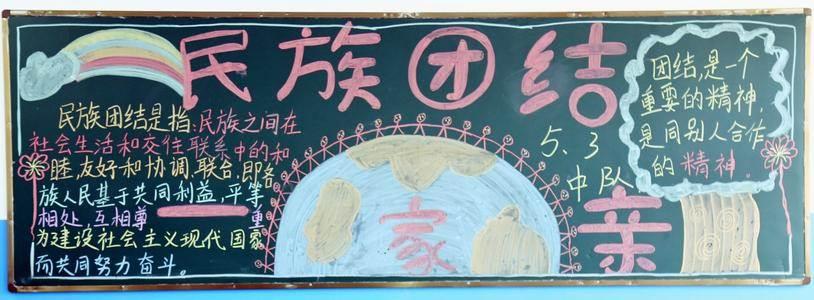 民族团结
民族团结是指:民族之间在
社会生活和交往联系中的和
睦,友好和协调,联合,即各
族人民基于共同利益,平等
相处,互相尊重
为建设社会主义现代国家
而共同努力奋斗。
5.3
中队
家
亲
团结,是一个
重要的精神,
是同别人合作
的精神。